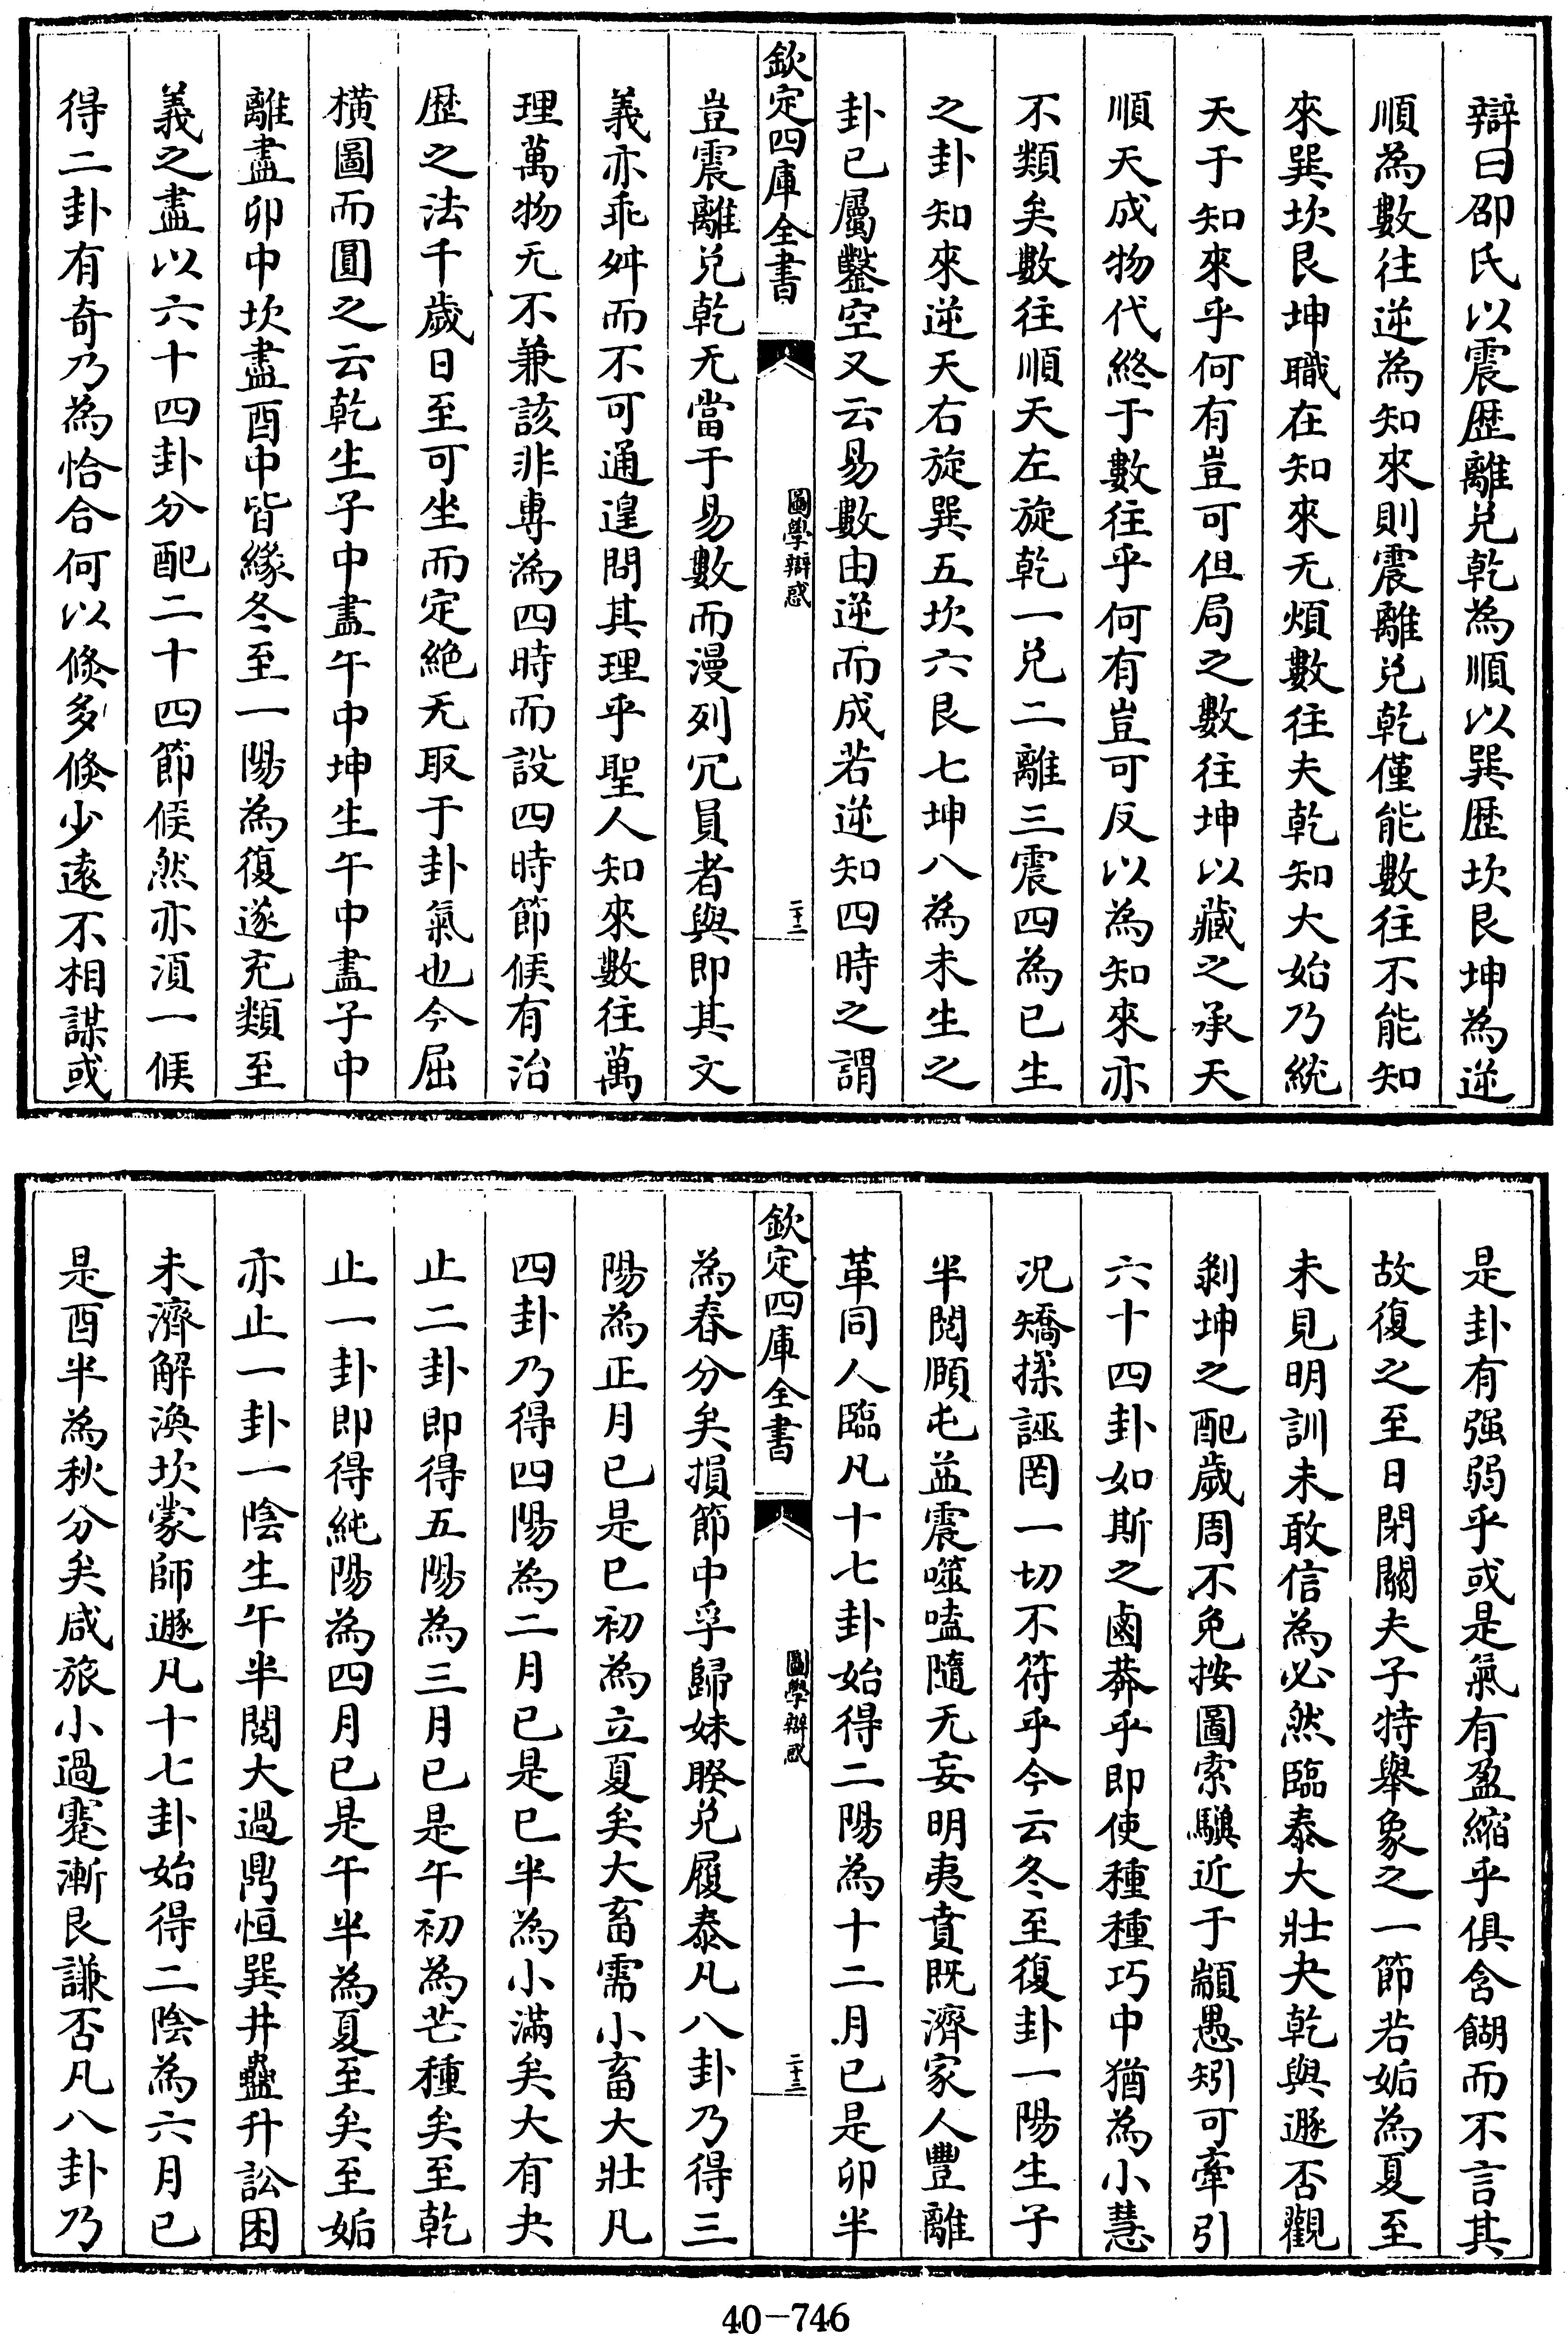 辯曰邵氏以震歴離兑乾為順以巽歴坎艮坤為逆
順為數往逆為知來則震離兑乾僅能數往不能知
來巽坎艮坤職在知來无煩數往夫乾知大始乃統
天于知來乎何有豈可但局之數往坤以藏之承天
順天成物代終于數往乎何有豈可反以為知來亦
不類矣數往順天左旋乾一兑二離三震四為已生
之卦知來逆天右旋巽五坎六艮七坤八為未生之
卦已屬鑿空又云易數由逆而成若逆知四時之謂
欽定四庫全書
圖學辯惑
二十二
豈震離兑乾无當于易數而漫列冗員者與即其文
義亦乖舛而不可通遑問其理乎聖人知來數往萬
理萬物无不兼該非專為四時而設四時節候有治
歴之法千歲日至可坐而定絶无取于卦氣也今屈
横圖而圓之云乾生子中盡午中坤生午中盡子中
離盡卯中坎盡酉中皆緣冬至一陽為復遂充類至
義之盡以六十四卦分配二十四節候然亦須一候
得二卦有奇乃為恰合何以倐多倐少遠不相謀或
是卦有强弱乎或是氣有盈縮乎俱含餬而不言其
故復之至日閉關夫子特舉象之一節若姤為夏至
未見明訓未敢信為必然臨泰大壯夬乾與遯否觀
剝坤之配歲周不免按圖索驥近于顓愚矧可牽引
六十四卦如斯之鹵莽乎即使種種巧中猶為小慧
况矯揉誣罔一切不符乎今云冬至復卦一陽生子
半閲頤屯益震噬嗑隨无妄明夷賁既濟家人豐離
革同人臨凡十七卦始得二陽為十二月已是卯半
欽定四庫全書
圖學辯惑
二十三
為春分矣損節中孚歸妹睽兑履泰凡八卦乃得三
陽為正月已是巳初為立夏矣大畜需小畜大壯凡
四卦乃得四陽為二月已是巳半為小滿矣大有夬
止二卦即得五陽為三月已是午初為芒種矣至乾
止一卦即得純陽為四月已是午半為夏至矣至姤
亦止一卦一陰生午半閲大過鼎恒巽井蠱升訟困
未濟解渙坎蒙師遯凡十七卦始得二陰為六月已
是酉半為秋分矣咸旅小過蹇漸艮謙否凡八卦乃
40-746